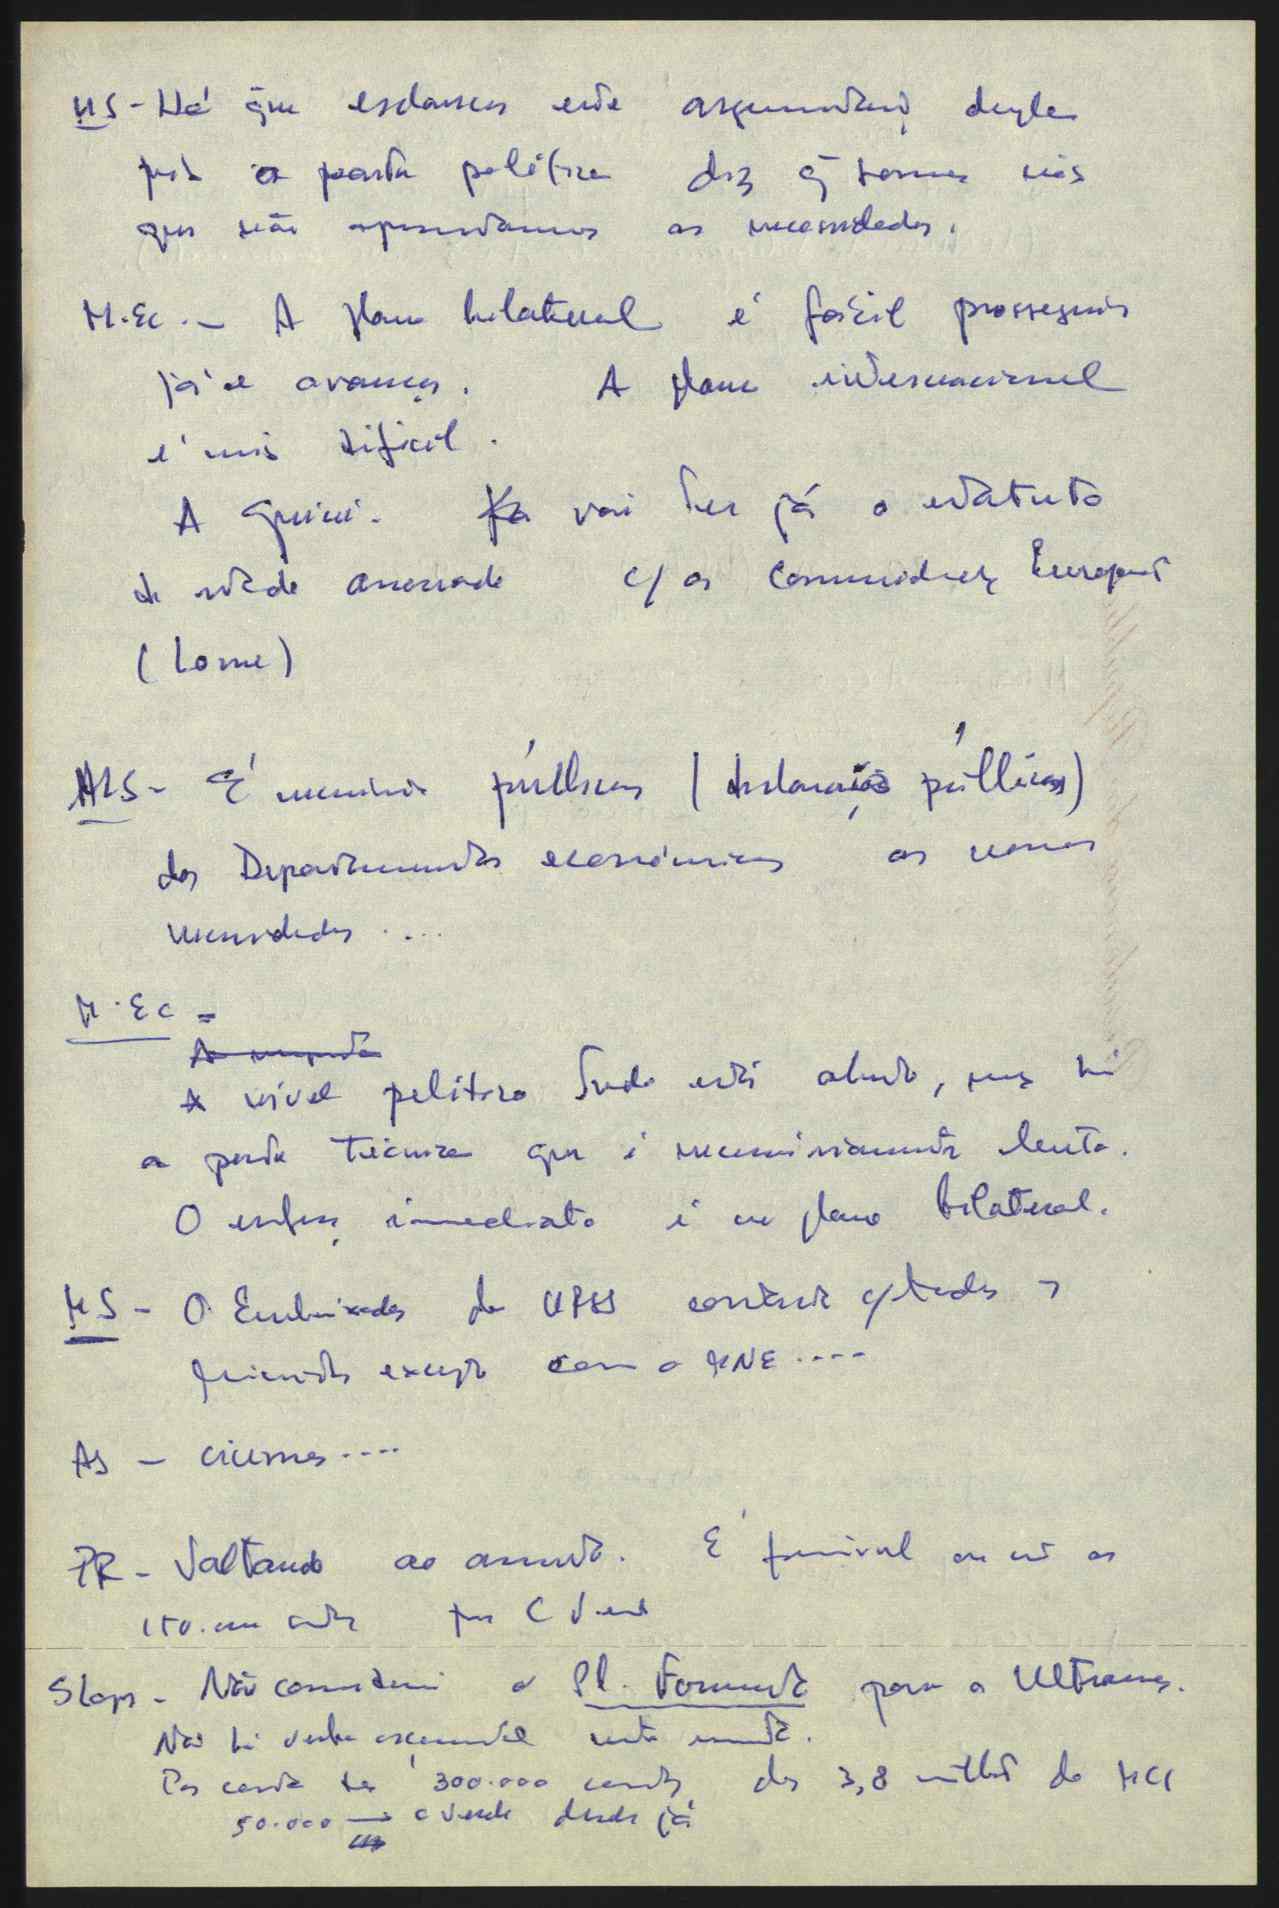 MS - Há que esclarecer este argumentário dupla
pois a parte política diz q̃ somos nós
que não apresentamos as necessidades.
M.Ec. - A plano bilateral é fácil prosseguir
já e avançar. A plano internacional
é mais difícil.
A Guiné. vai ter já o estatuto
de estado associado c/ as Comunidades Europeias
(Lomé)
MS - É necessário públicas (declarações públicas)
dos Departamentos económicos as nossas
necessidades ....
M.Ec -
A nível político tudo está aberto, mas há
a parte técnica que é necessariamente lenta.
O esforço imediato é no plano bilateral.
MS - O Embaixador da URSS contacta c/ todos
excepto com o MNE ....
AS - ciumes ....
PR - Voltando ao assunto. É possível ou não os
150.000 contos para C Verde
S Lopes - Não considerei o Pl. Fomento para o Ultramar.
Não há verba orçamental neste sentido.
300.000 contos dos 3,8 milhões do
50.000 → C Verde desde já